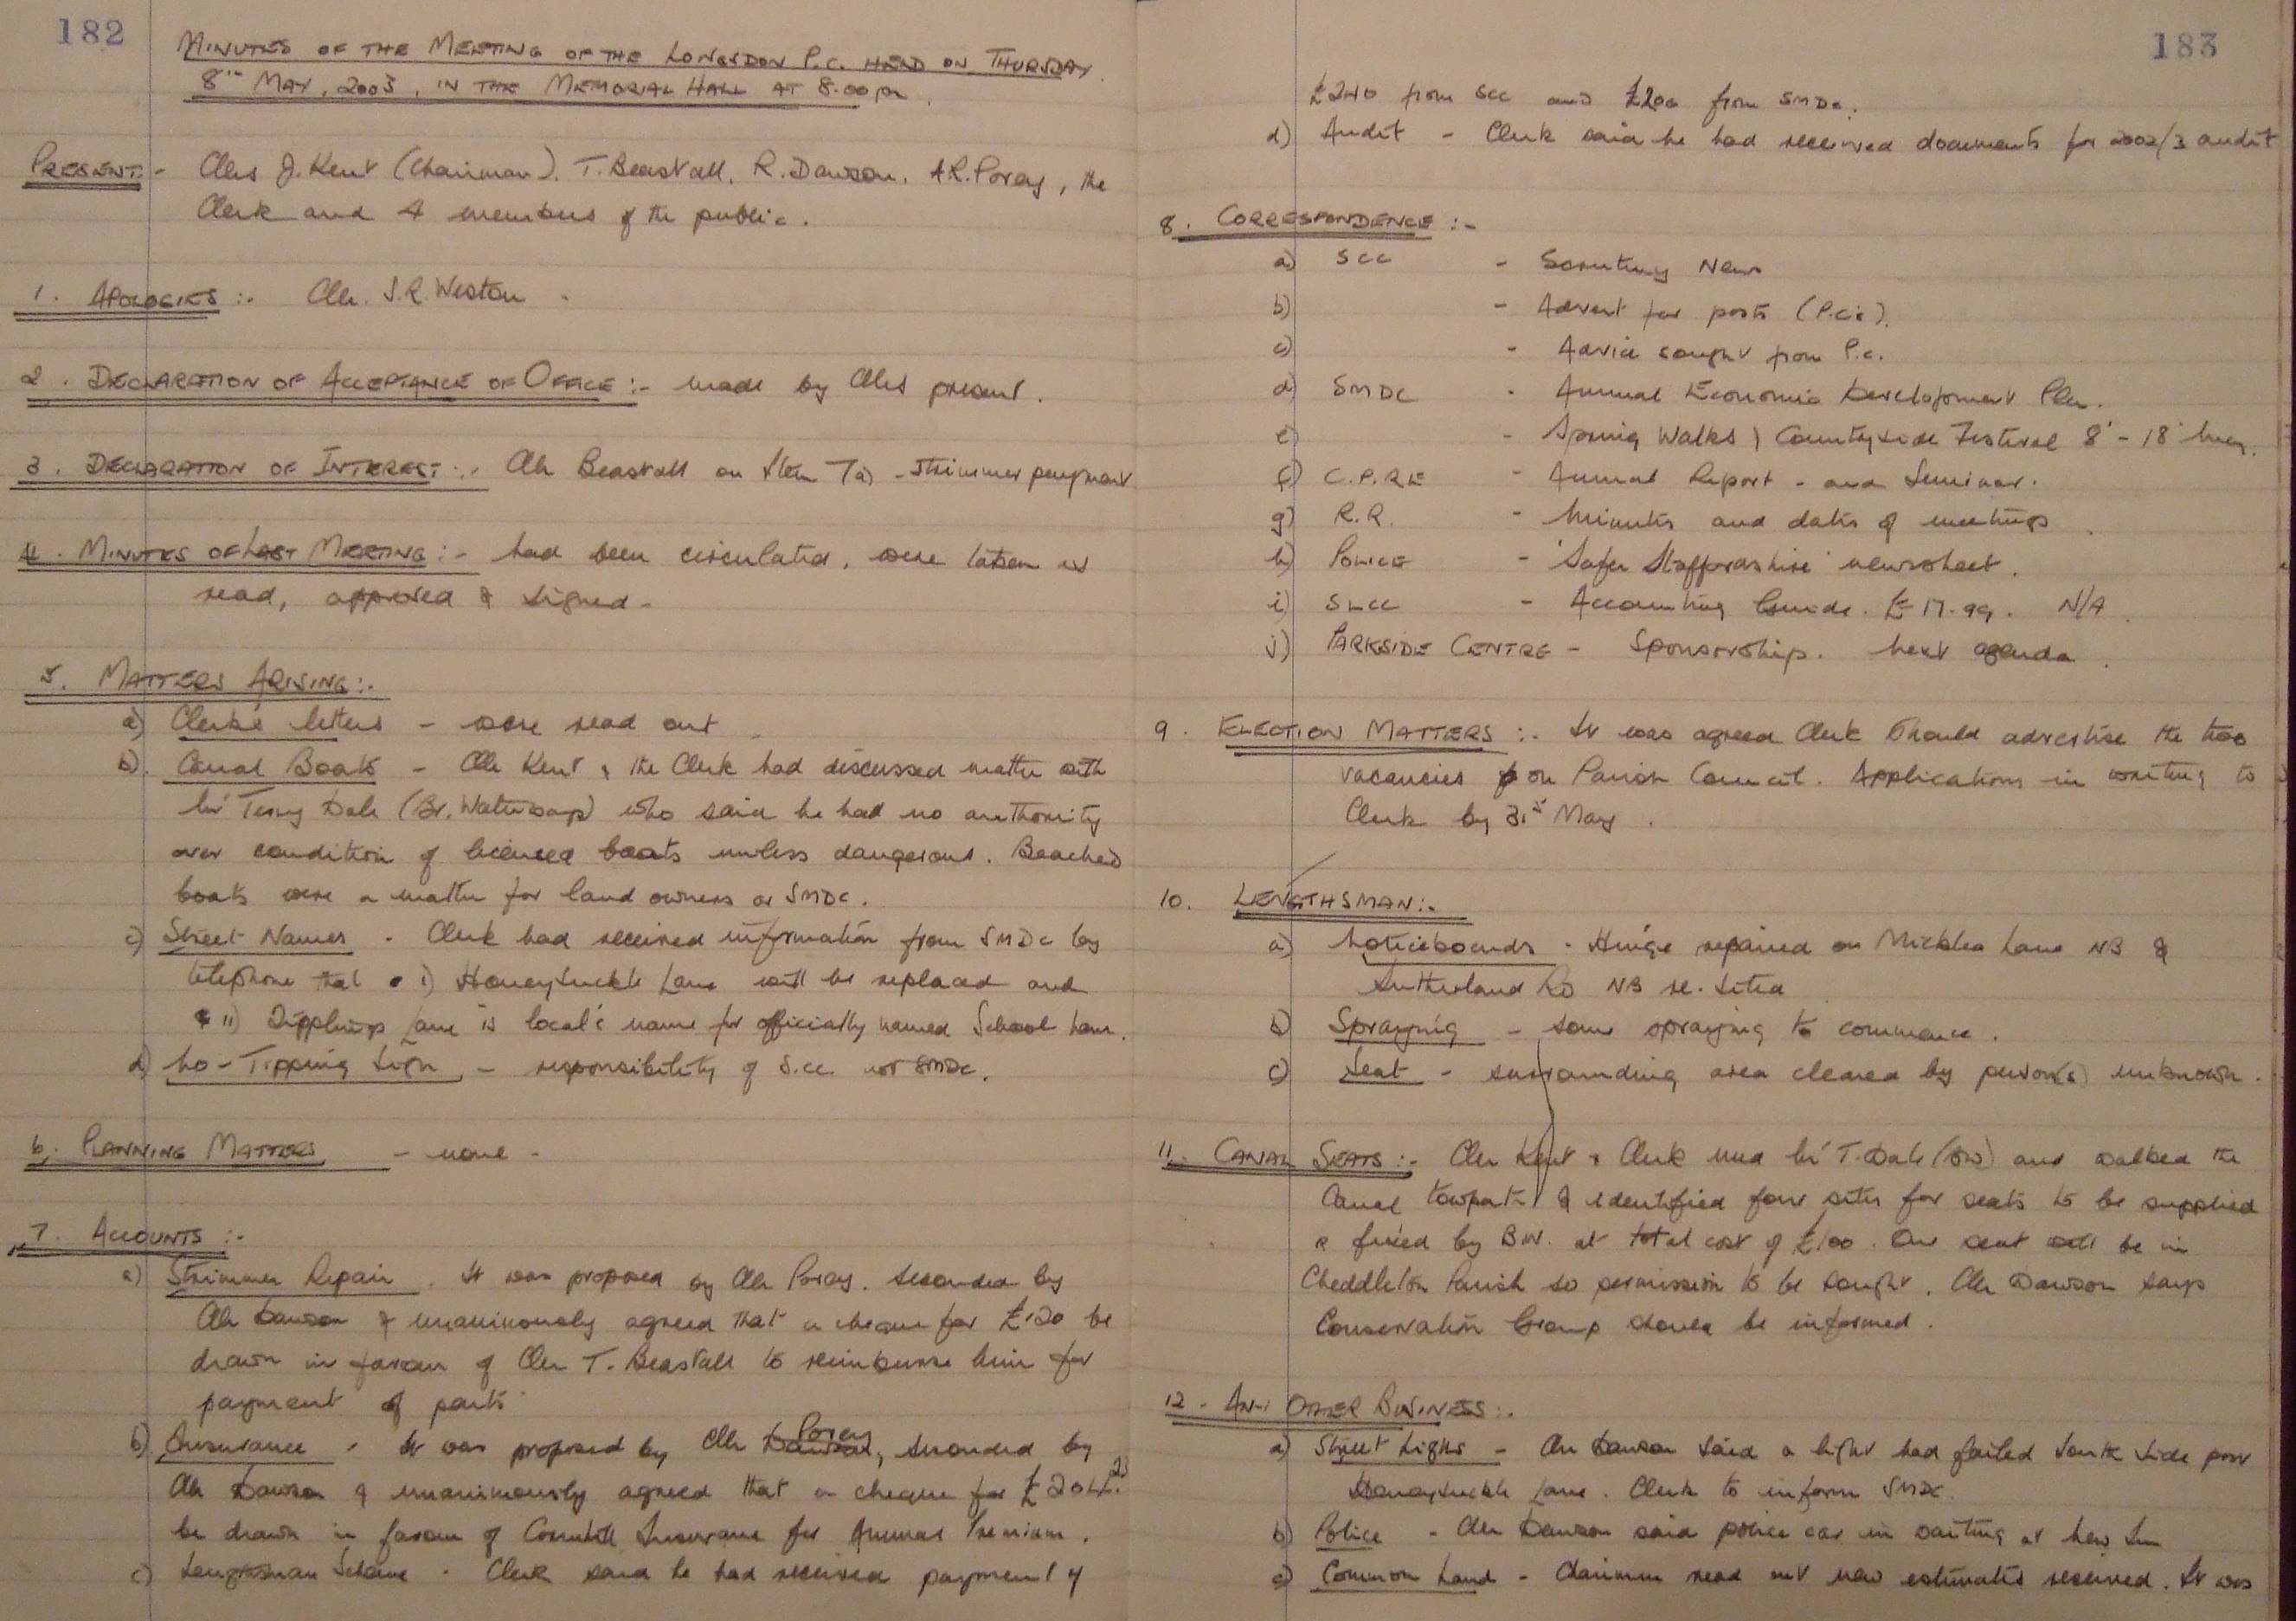 182
MINUTES OF THE MEETING OF THE LONGSDON P.C. HELD ON THURSDAY
8th MAY, 2003, IN THE MEMORIAL HALL AT 8.00pm.
PRESENT:- Cllrs J. Kent (Chairman), T. Beastall, R. Dawson, A.R. Povey, the
Clerk and 4 members of the public.
1. APOLOGIES:- Cllr. S.R. Weston -
2. DECLARATION OF ACCEPTANCE OF OFFICE:- made by Cllrs present.
3. DECLARATION OF INTEREST:- Cllr Beastall on Item 7a) - Strimmer payment
4. MINUTES OF LAST MEETING:- had been circulated, were taken as
read, approved & signed -
5. MATTERS ARISING:-
a) Clerk's letters - were read out
b) Canal Boats - Cllr Kent & the Clerk had discussed matter with
Mr Terry Dale (Br. Waterways) who said he had no authority
over condition of licenced boats unless dangerous. Beached
boats were a matter for land owners or SMDC.
c) Street Names - Clerk had received information from SMDC by
telephone that i) Honeysuckle Lane will be replaced and
ii) Lane is local's name for officially named School Lane.
d) No-Tipping Sign - responsibility of S.C.C. not SMDC.
6. PLANNING MATTERS - none -
7. ACCOUNTS:-
a) Strimmer Repair. It was proposed by Cllr Povey, seconded by
Cllr Dawson & unanimously agreed that a cheque for £120 be
drawn in favour of Cllr T. Beastall to reimburse him for
payment of parts
b) Insurance - It was proposed by Cllr Dawson Povey, seconded by
Cllr Dawson & unanimously agreed that a cheque for £204.
be drawn in favour of Cornhill Insurance for Annual Premium.
c) Lengthsman Scheme - Clerk said he had received payment of
183
£240 from SCC and £200 from SMDC.
d) Audit - Clerk said he had received documents for 2002/3 audit
8. CORRESPONDENCE:-
a) SCC - Scrutiny News
b) - Advert for posts (P.C.'s).
c) - Advice sought from P.C.
d) SMDC - Annual Economic Development Plan.
e) - Spring Walks & Countryside Festival 8th - 18th May.
f) C.P.R.E - Annual Report - and Seminar.
g) R.R. - Minutes and dates of meetings
h) POLICE - 'Safer Staffordshire' newssheet.
i) SLCC - Accounting Guide. £17.99. N/A
j) PARKSIDE CENTRE - Sponsorship. Next agenda.
9. ELECTION MATTERS:- It was agreed Clerk should advertise the two
vacancies on Parish Council. Applications in writing to
Clerk by 31st May.
10. LENGTHSMAN:-
a) Noticeboards - Hinge repaired on Micklea Lane NB &
Sutherland Rd NB re-sited
b) Spraying - some spraying to commence.
c) Seat - surrounding area cleared by person(s) unknown.
11. CANAL SEATS:- Cllr Kent & Clerk Mr T. Dale (BW) and walked the
Canal towpath & identified four sites for seats to be supplied
& fixed by B.W. at total cost of £100. One seat will be in
Cheddleton Parish so permission to be sought. Cllr Dawson says
Conservation Group should be informed.
12. ANY OTHER BUSINESS:-
a) Street Lights - Cllr Dawson said a light had failed South side past
Honeysuckle Lane. Clerk to inform SMDC.
b) Police - Cllr Dawson said police car in waiting at New Inn
c) Common Land - Chairman read out new estimates received. It was